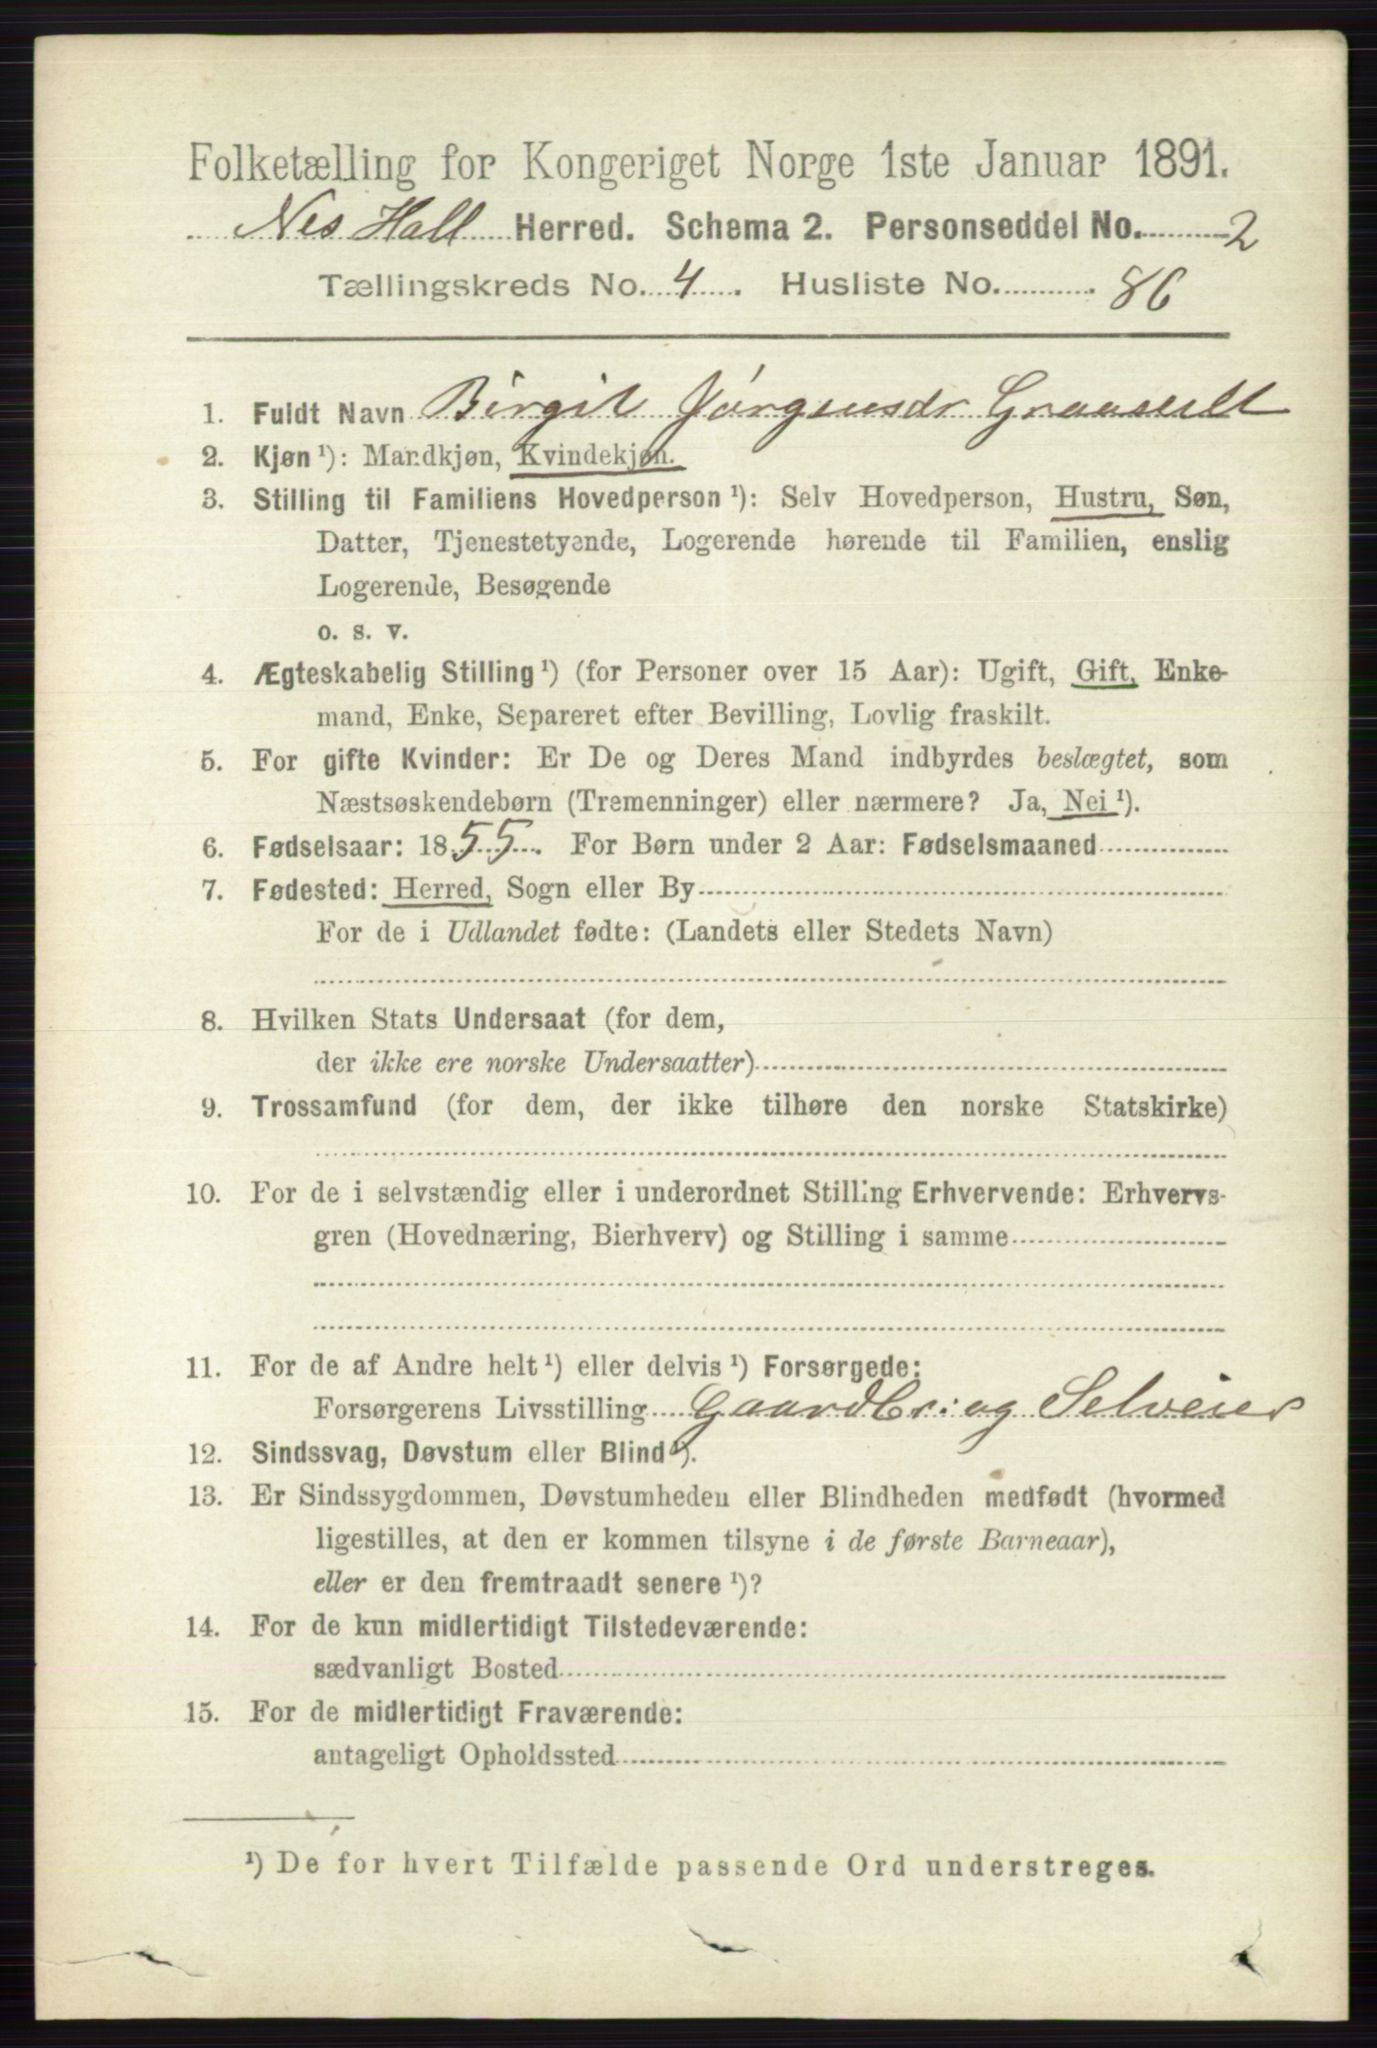 Folketælling for Kongeriget Norge 1ste Januar 1891.
Nes Hall Herred. Schema 2. Personseddel No. 2
Tællingskreds No. 4. Husliste No. 86
1. Fuldt Navn Birgit Jörgensdr
2. Kjøn ¹): Mandkjøn, Kvindekjøn.
3. Stilling til Familiens Hovedperson ¹): Selv Hovedperson, Hustru, Søn,
Datter, Tjenestetyende, Logerende hørende til Familien, enslig
Logerende, Besøgende
o. s. v.
4. Ægteskabelig Stilling ¹) (for Personer over 15 Aar): Ugift, Gift, Enke-
mand, Enke, Separeret efter Bevilling, Lovlig fraskilt.
5. For gifte Kvinder: Er De og Deres Mand indbyrdes beslægtet, som
Næstsøskendebørn (Tremenninger) eller nærmere? Ja, Nei ¹).
6. Fødselsaar: 1855. For Børn under 2 Aar: Fødselsmaaned
7. Fødested: Herred, Sogn eller By
For de i Udlandet fødte: (Landets eller Stedets Navn)
8. Hvilken Stats Undersaat (for dem,
der ikke ere norske Undersaatter)
9. Trossamfund (for dem, der ikke tilhøre den norske Statskirke)
10. For de i selvstændig eller i underordnet Stilling Erhvervende: Erhvervs-
gren (Hovednæring, Bierhverv) og Stilling i samme
11. For de af Andre helt ¹) eller delvis ¹) Forsørgede:
Forsørgerens Livsstilling Gaardbr: og Selveier
12. Sindssvag, Døvstum eller Blind ¹).
13. Er Sindssygdommen, Døvstumheden eller Blindheden medfødt (hvormed
ligestilles, at den er kommen tilsyne i de første Barneaar),
eller er den fremtraadt senere ¹)?
14. For de kun midlertidigt Tilstedeværende:
sædvanligt Bosted
15. For de midlertidigt Fraværende:
antageligt Opholdssted
¹) De for hvert Tilfælde passende Ord understreges.